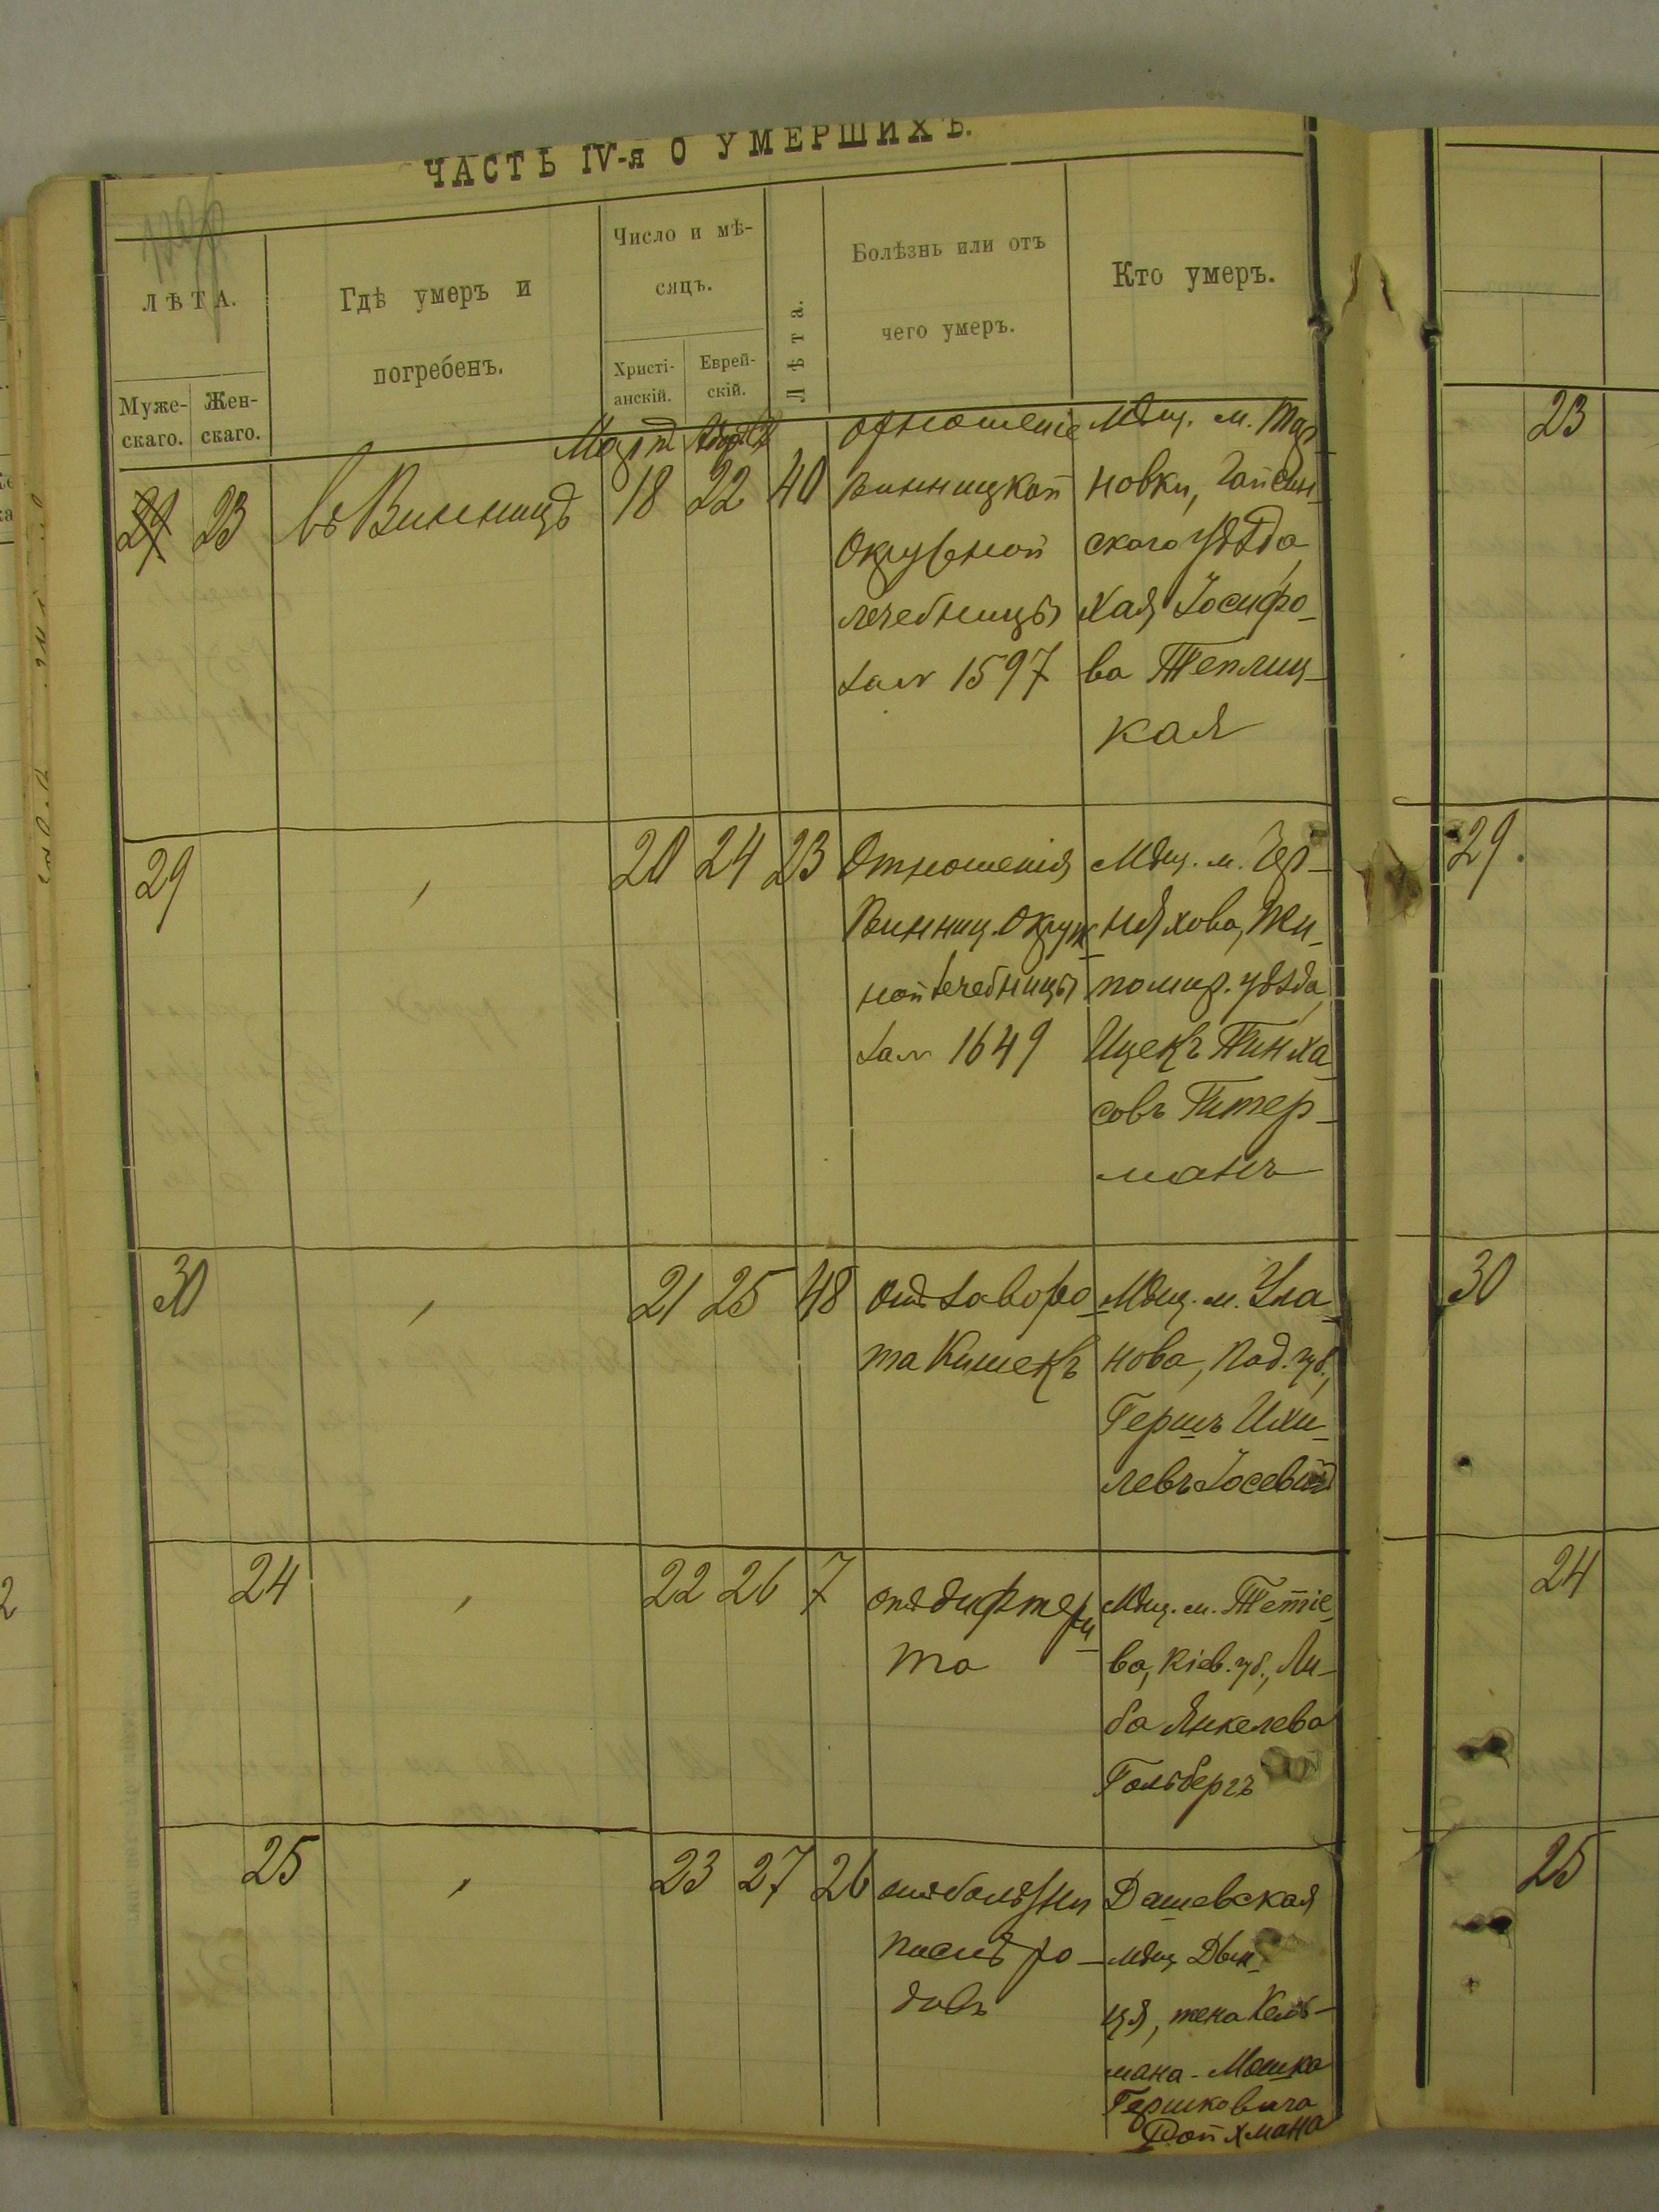 ЧАСТЬ IV-я О УМЕРШИХЪ.
ЛѢТА.
Муже-
скаго.
Жен-
скаго.
Гдѣ умеръ и
погребенъ.
Число и мѣ-
сяцъ.
Христі-
анскій.
Еврей-
скій.
Лѣта.
Болѣзнь или отъ
чего умеръ.
Кто умеръ.
Мартъ
23
въ Винницѣ
18 22 40
отношеніе
Винницкой
Окружной
лечебницы
за № 1597
Мѣщ. м. Тар
новки, Гайсин-
скаго уѣзда,
Хая Іосифо-
ва Теплиц-
кая
29
20 24 23
Отношенія
Винниц. Окруж-
ной лечебницы
за № 1649
Мѣщ. м. Чер-
няхова, Жи-
томир. уѣзда,
Ицекъ Пинха-
совъ Питер-
манъ
30
21 25 48
отъ заворо-
та кишекъ
Мѣщ. м. Ула-
нова, Под. губ.,
Гершъ Ихи-
левъ Іосевий
24
22 26 7
отъ дифтери-
та
Мѣщ. м. Тетіе-
ва, Кіев. губ., Ли-
ба Янкелева
Гольбергъ
25
23 27 26
отъ болѣзни
послѣ ро-
довъ
Дашевская
мѣщ. Двы-
ця, жена Кель-
мана-Мошка
Гершковича
Ройхмана
23
29.
30
24
25